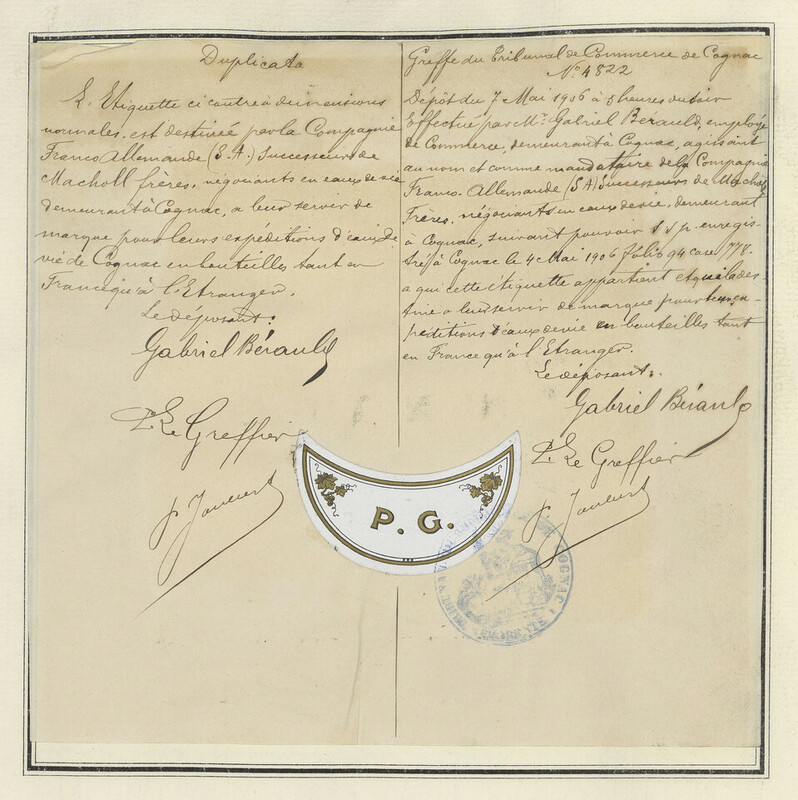 Duplicata
L'Etiquette ci contre à dimensions
normales, est destinée par la Compagnie
Franco Allemande (S.A.) Successeurs de
Macholl frères, négociants en eaux de vie
demeurant à Cognac, a leur servir de
marque pour leurs expéditions d'eaux de
vie de Cognac en bouteilles tant en
France qu'à l'Etranger.
Le déposant:
Gabriel Bérauld
P. Le Greffier
Greffe du Tribunal de Commerce de Cognac
No 4822
Dépôt du 7 Mai 1906 à 5 heures du soir
Effectué par Mr. Gabriel Berauld, employé
de Commerce, demeurant à Cognac, agissant
au nom et comme mandataire de la Compagnie
Franco-Allemande (SA) Successeurs de Macholl
Frères, négociants en eaux de vie, demeurant
à Cognac, suivant pouvoir s.s.p. enregis-
tré à Cognac le 4 Mai 1906 folio 94 case 778.
a qui cette étiquette appartient et qui la des
tine a leur servir de marque pour leurs ex-
péditions d'eaux de vie en bouteilles tant
en France qu'à l'Etranger.
Le déposant:
Gabriel Bérauld
P. Le Greffier
P. G.
COGNAC